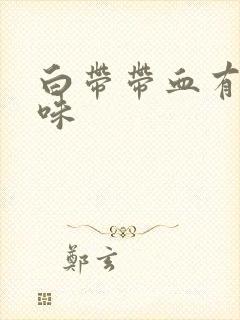 白带带血有
味
鄭玄